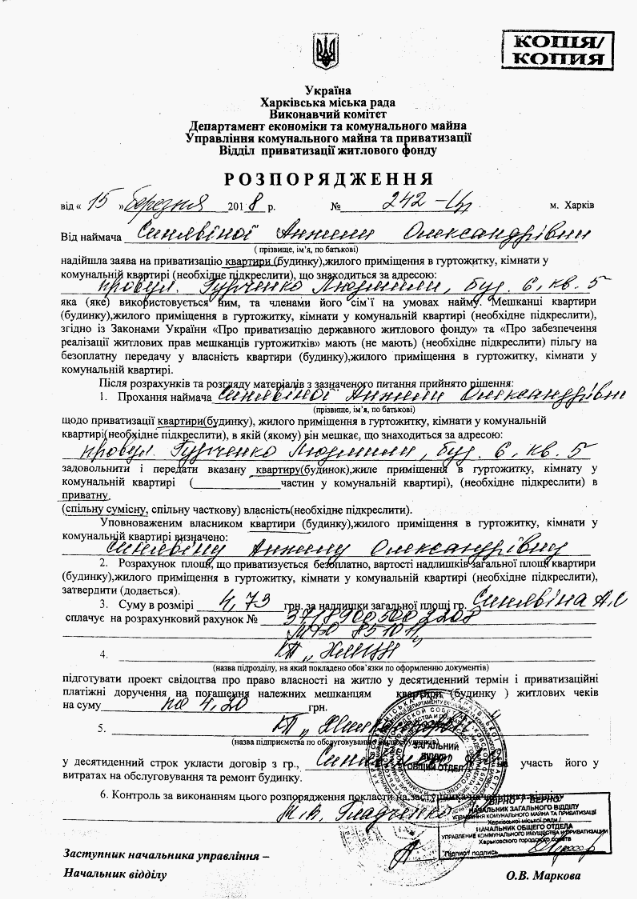 КОПІЯ/
КОПИЯ
Україна
Харківська міська рада
Виконавчий комітет
Департамент економіки та комунального майна
Управління комунального майна та приватизації
Відділ приватизації житлового фонду
РОЗПОРЯДЖЕННЯ
від « 15 » березня 2018 р. № 242- м. Харків
Від наймача Синявіної Анжели Олександрівни
( прізвище, ім’я, по батькові)
надійшла заява на приватизацію квартири (будинку),жилого приміщення в гуртожитку, кімнати у
комунальній квартирі (необхідне підкреслити), що знаходиться за адресою:
провул. Гурченко Людмили, буд. 6, кв. 5
яка (яке) використовується ним, та членами його сім’ї на умовах найму. Мешканці квартири
(будинку),жилого приміщення в гуртожитку, кімнати у комунальній квартирі (необхідне підкреслити),
згідно із Законами України «Про приватизацію державного житлового фонду» та «Про забезпечення
реалізації житлових прав мешканців гуртожитків» мають (не мають) (необхідне підкреслити) пільгу на
безоплатну передачу у власність квартири (будинку),жилого приміщення в гуртожитку, кімнати у
комунальній квартирі.
Після розрахунків та розгляду матеріалів з зазначеного питання прийнято рішення:
1. Прохання наймача Синявіної Анжели Олександрівни
(прізвище, ім’я, по батькові)
щодо приватизації квартири(будинку), жилого приміщення в гуртожитку, кімнати у комунальній
квартирі(необхідне підкреслити), в якій (якому) він мешкає, що знаходиться за адресою:
провул. Гурченко Людмили, буд. 6, кв. 5
задовольнити і передати вказану квартиру(будинок),жиле приміщення в гуртожитку, кімнату у
комунальній квартирі ( частин у комунальній квартирі), (необхідне підкреслити) в
приватну,
(спільну сумісну, спільну часткову) власність(необхідне підкреслити).
Уповноваженим власником квартири (будинку),жилого приміщення в гуртожитку, кімнати у
комунальній квартирі визначено:
Синявіну Анжелу Олександрівну
2. Розрахунок площі, що приватизується безоплатно, вартості надлишків загальної площі квартири
(будинку),жилого приміщення в гуртожитку, кімнати у комунальній квартирі (необхідне підкреслити),
затвердити (додається).
3. Суму в розмірі 4,73 грн. за надлишки загальної площі гр. Синявіна А.О
сплачує на розрахунковий рахунок №
4. КП
(назва підрозділу, на який покладено обов’язки по оформленню документів)
підготувати проект свідоцтва про право власності на житло у десятиденний термін і приватизаційні
платіжні доручення на погашення належних мешканцям квартири (будинку ) житлових чеків
на суму на 4,20 грн.
5. КП
(назва підприємства по обслуговуванню
у десятиденний строк укласти договір з гр., на участь його у
витратах на обслуговування та ремонт будинку.
6. Контроль за виконанням цього розпорядження покласти на
ЗАГАЛЬНИЙ
ВІДДІЛ
ОБЩИЙ ОТДЕЛ
ВІРНО ВЕРНО
НАЧАЛЬНИК ЗАГАЛЬНОГО ВІДДІЛУ
УПРАВЛІННЯ КОМУНАЛЬНОГО МАЙНА ТА ПРИВАТИЗАЦІЇ
Харківської міської ради /
НАЧАЛЬНИК ОБЩЕГО ОТДЕЛА
УПРАВЛЕНИЕ КОММУНАЛЬНОГО ИМУЩЕСТВА И ПРИВАТИЗАЦИИ
Харьковского городского совета
Підпис/ подпись
Заступник начальника управління –
Начальник відділу О.В. Маркова